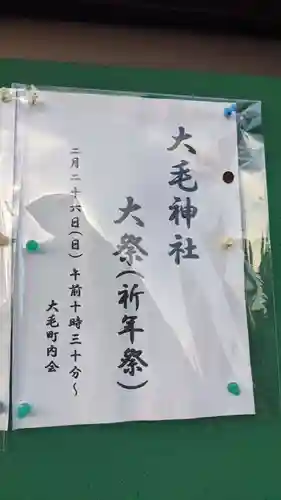 大毛神社
大祭(祈年祭)
二月二十六日(日)午前十時三十分～
大毛町内会